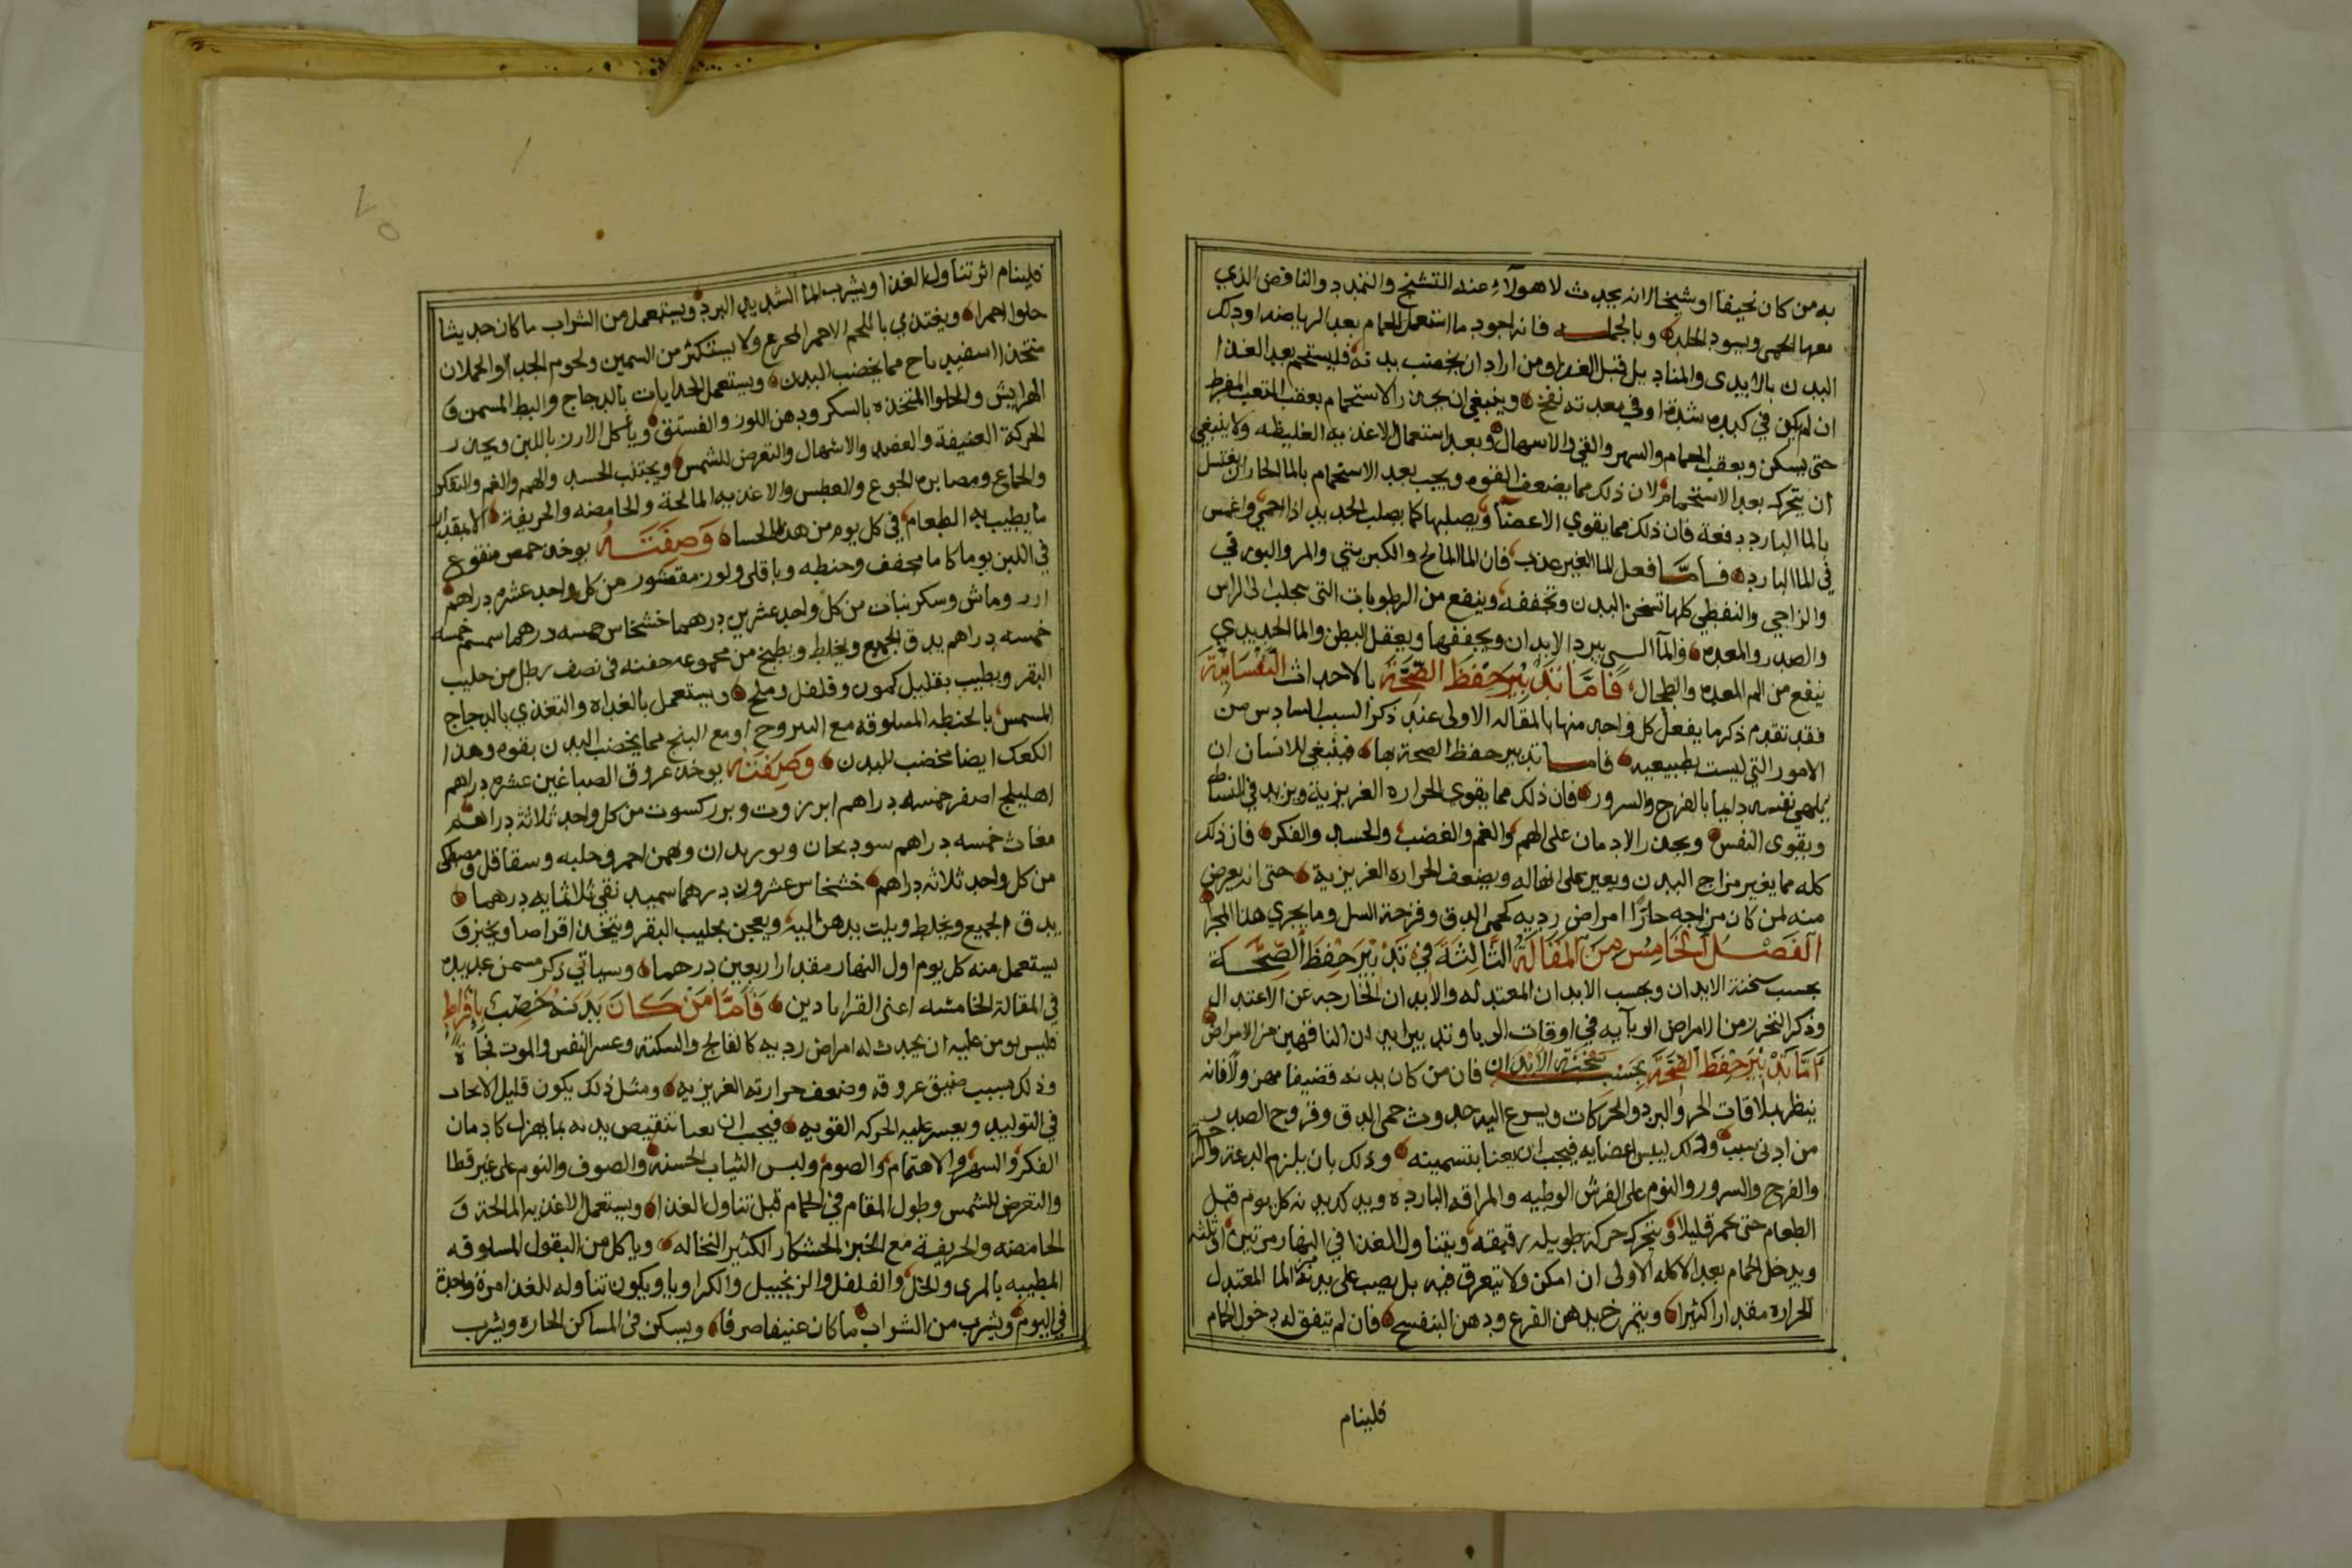 به من كان نحيفا او شيخا لانه يحدث لاهولاء عند التشنج والتمدد والنافض الذي
معها الحمى ويسود الجلده وبالجمله فانه اجود ما استعمل الحمام بعد الرياضه او دلك
البدن بالايدى والمناديل قبل الغدا ومن اراد ان يخصب بدنه فليستحم بعد الغدا
ان لم يكن في كبده شدة او في معدته نفخ وينبغي ان يحذر الاستحمام بعقب التعب المفرط
حتى يسكن وبعقب الحمام والسهر والقي والاسهال وبعد استعمال الاغذيه الغليظه ولا ينبغي
ان يتحرك بعد الاستحمام لان ذلك مما يضعف القوه ويجب بعد الاستحمام بالما الحار ان يغتسل
بالما البارد دفعة فان ذلك مما يقوي الاعضآ ويصلبها كما يصلب الحديد اذا احمي واغمس
في الما البارد فامّا فعل الما الغير عذب فان الما المالح والكبريتي والمر والبورقي
والزاجي والنفطي كلها تسخن البدن وتجففه وينفع من الرطوبات التى تجلب الى الراس
والصدر والمعده والمآ السى يبرد الابدان ويجففها ويعقل البطن والما الحديدي
ينفع من الم المعده والطحال فَامَّا تَدْبِيْر حِفْظ الصِّحَّة بالاحداث النَّفْسَانِيَّة
فقد تقدم ذكر ما يفعل كل واحد منها بالمقاله الاولى عند ذكر السبب السادس من
الامور التي ليست بطبيعيه فاما تدبير حفظ الصحة بها فينبغي للانسان ان
يلهي نفسه دايما بالفرح والسرور فان ذلك مما يقوي الحراره الغريزية ويزيد في النشاط
ويقوى النفس ويحذر الادمان على الهم والغم والغضب والحسد والفكر فان ذلك
كله مما يغير مزاج البدن ويعين على انهاله ويضعف الحراره الغريزية حتى انه يعرض
منه لمن كان مزاجه حارًّا امراض رديه كحمى الدق وقرحة السل وما يجري هذا المجرا
اَلْفَصْل اَلْخَامِس مِنَ اَلْمَقَالَةُ الثَّالِثَةُ فِيْ تَدْبِيْر حِفْظ الصِّحَّة
بحسب سخنة الابدان وبحسب الابدان المعتدله والابدان الخارجه عن الاعتدال
وذكر التحرز من الامراض الوبآيه في اوقات الوبا وتدبير ابدان الناقهين من الامراض
اَمَّا تَدْبِيْر حِفْظ الصِّحَّة بِحَسَب سَخْنَة الاَبْدَان فان من كان بدنه قضيفا مهزولا فانه
ينظر بملاقات الحر والبرد والحركات ويسرع اليه حدوث حمى الدق وقروح الصدر
من ادنى سبب ولذلك ليبس اعضايه فيجب ان يعنا بتسمينه وذلك بان يلزم الدعة والراحة
والفرح والسرور والنوم على الفرش الوطيه والمراقد البارده ويدلك بدنه كل يوم قبل
الطعام حتى يحمر قليلا ويتحرك حركة طويله رقيقه ويتناول الغدا في النهار مرتين او ثلثه
ويدخل الحمام بعد الاكله الاولى ان امكن ولا يتعرق فيه بل يصب على بدنه الما المعتدل
الحراره مقدارا كثيرا ويتمرخ بدهن القرع ودهن البنفسج فان لم يتفق له دخول الحمام
فلينام
فلينام اثر تناول الغدا ويشرب الما الشديد البرد ويستعمل من الشراب ما كان حديثا
حلوا احمرا ويغتدي باللحم الاحمر المجزع ولا يستكثر من السمين ولحوم الجدا والحملان
متخذا اسفيدباج مما يخضب البدن ويستعمل الجدايات بالدجاج والبط المسمن و
الهرايش والحلوا المتخذه بالسكر ودهن اللوز والفستق وياكل الارز باللبن ويحذر
الحركة العنيفة والفصد والاسهال والتعرض للشمس ويجتنب الحسد والهم والغم والتفكر
والجماع ومصابره الجوع والعطس والاغذيه المالحة والحامضه والحريفة الا بمقدار
ما يطيب به الطعام في كل يوم من هذا الحسا وَصِفَتَهُ يوخد حمص منقوع
في اللبن يوما كاملا مجفف وحنطه وباقلى ولوز مقشور من كل واحد عشره دراهم
ارز وماش وسكر نبات من كل واحد عشرين درهما خشخاش خمسه درهما سمسم خمسه
خمسه دراهم يدق الجميع ويخلط ويطبخ من مجموعه حفنه فى نصف رطل من حليب
البقر ويطيب بقليل كمون وفلفل وملح ويستعمل بالغداه والتغدي بالدجاج
المسمن بالحنطه المسلوقه مع السروح او مع البنج مما يخضب البدن بقوه وهذا
الكعك ايضا مخضب للبدن وَصِفَتهُ يوخد عروق الصباغين عشره دراهم
اهليلج اصفر خمسه دراهم ابرزوت وبوركسوت من كل واحد ثلاثة دراهم
مغاث خمسه دراهم سورنجان وبوريدان وبهمن احمر وحلبه وسقاقل ومصطكى
من كل واحد ثلاثه دراهم خشخاس عشرون درهما سميد نقي ثلاثمايه درهما
يدق الجميع ويخلط ويلت بدهن اليه ويعجن بحليب البقر ويتخذ اقراصا ويخبز و
يستعمل منه كل يوم اول النهار مقدار اربعين درهما وسياتي ذكر مسمن عديده
في المقالة الخامسه اعنى القراباذين فَاَمَّا مَنْ كَانَ بَدَنَهُ خَصِب بِافْرَاط
فليس يومن عليه ان يحدث له امراض رديه كالفالج والسكته وعسر النفس والموت فجأةً
وذلك بسبب ضيق عروقه وضعف حرارته الغريزيه ومثل ذلك يكون قليل الانجاب
في التوليد ويعسر عليه الحركه القويه فيجب ان يعنا بتنقيص بدنه بما يهزل كادمان
الفكر والسهر والاهتمام والصوم ولبس الثياب الخشنه والصوف والنوم على غير قطا
والتعرض للشمس وطول المقام في الحمام قبل تناول الغذا ويستعمل الاغذيه المالحة و
الحامضه والحريفة مع الخبز الخشكار الكثير النخاله وياكل من البقول المسلوقه
المطيبه بالمرى والخل والفلفل والزنجبيل والكراويا ويكون تناوله للغدا مرة واحدة
في اليوم ويشرب من الشراب ما كان عتيقا صرفا ويسكن فى المساكن الحاره ويشرب